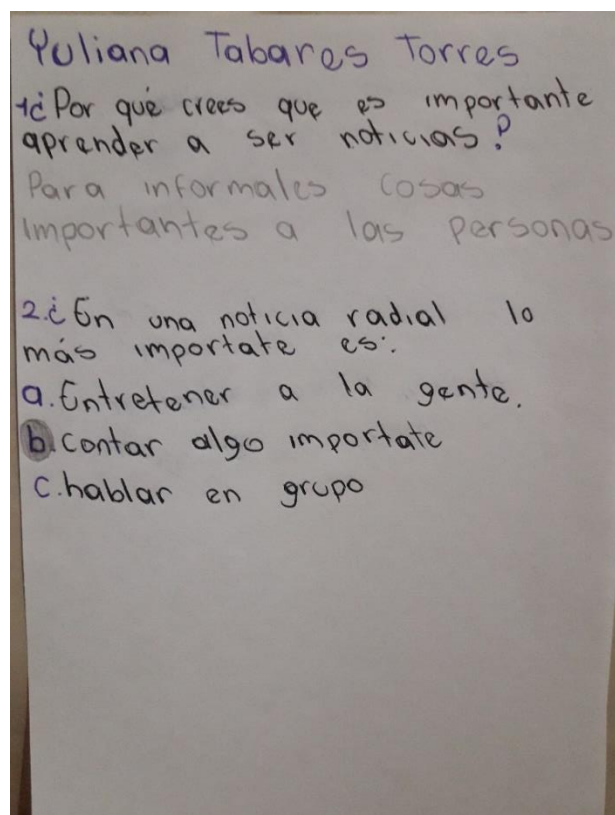 Yuliana Tabares Torres
1¿Por qué crees que es importante
aprender a ser noticias?
Para informales cosas
importantes a las personas
2.¿En una noticia radial lo
más importate es:
a. Entretener a la gente.
b. contar algo importate
c. hablar en grupo